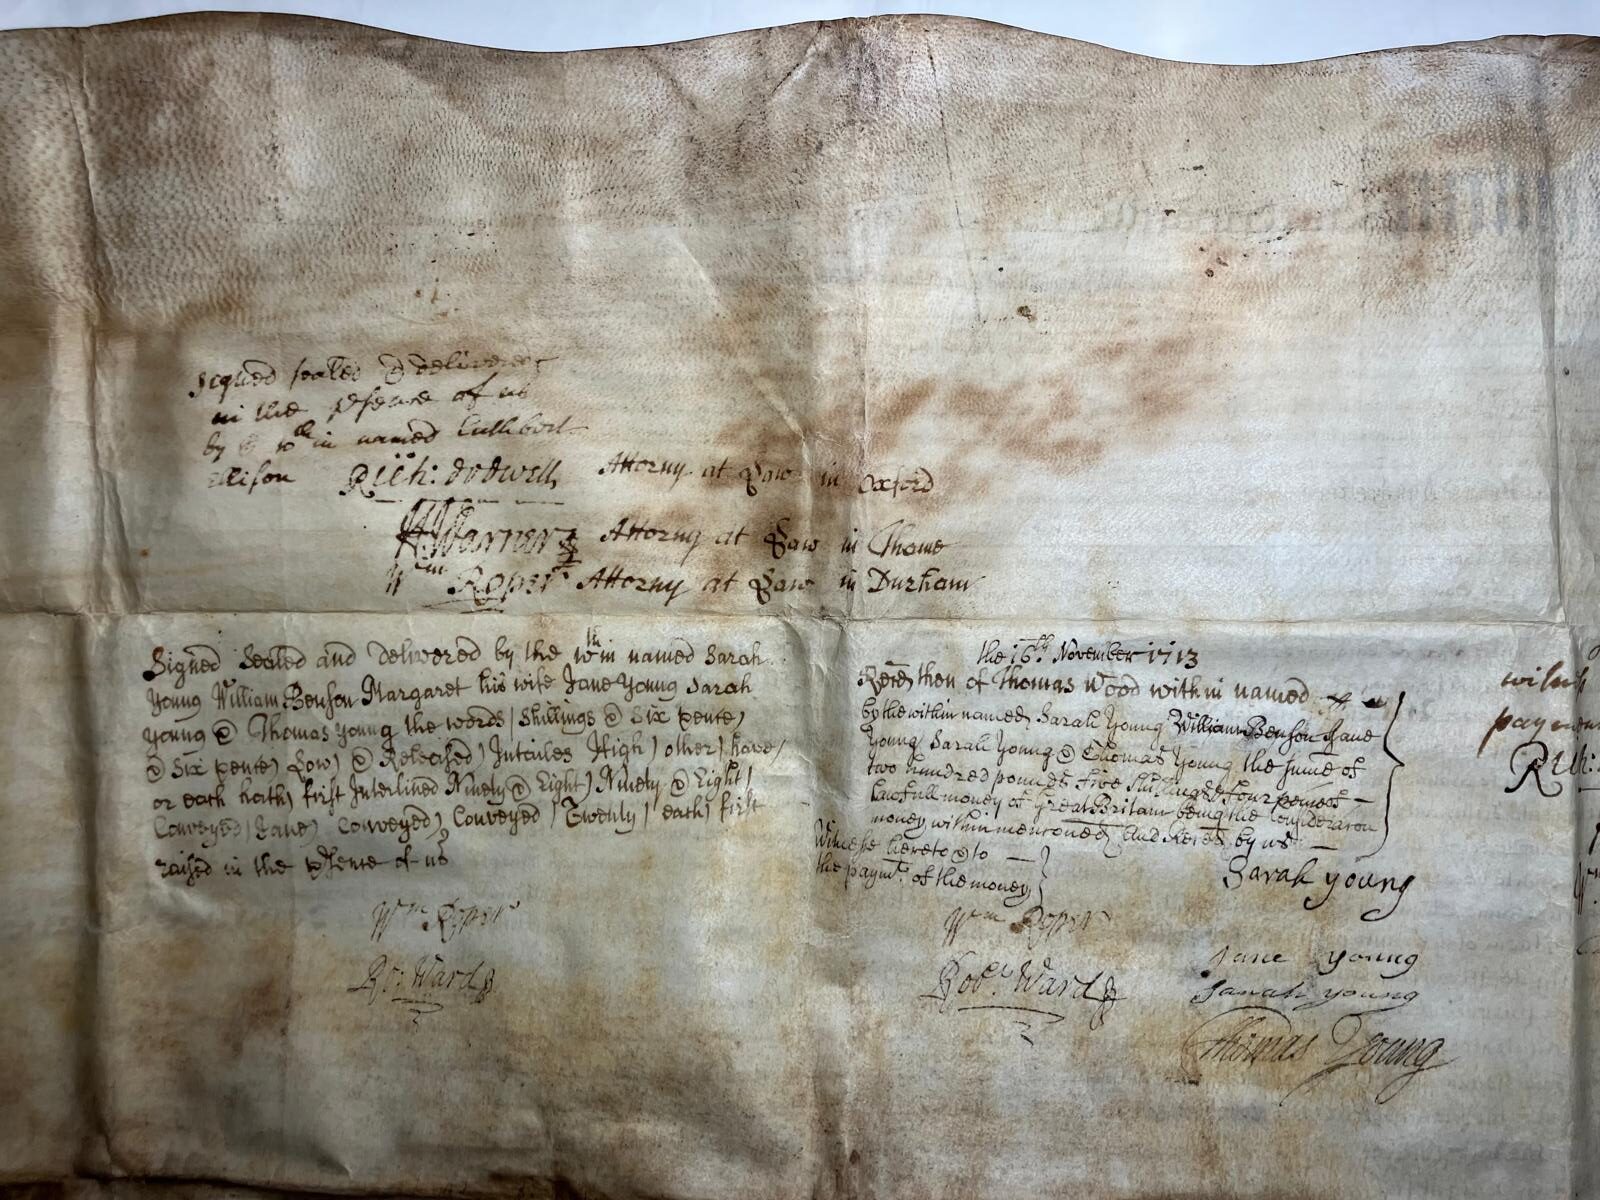 Signed sealed & delivered
in the psence of us
by ye wthin named Cuthbert
Ellison Rich: Dodwell Attorny at Law in Oxford
H Warner Attorny at Law in Thame
Wm Roper Attorny at Law in Durham
Signed Sealed and delivered by the wthin named Sarah
Young William Benson Margaret his wife Jane Young Sarah
Young & Thomas Young the words / Shillings & Six pence)
& Six pence) Low) & Released) Intailes High) other) have/
or eath hath) first Interlined Ninety & Eight) Ninety & Eight)
Conveyed/ Jane) Conveyed) Conveyed / Twenty / each) first
raised in the psence of us
Wm Roper
Ro: Ward
the 16th November 1713
Reced then of Thomas Wood within named
by the within named Sarah Young William Benson Jane
Young Sarah Young & Thomas Young the sume of
two hundred pounds five Shillings & four pence
lawfull money of Great Britain being the Consideracon
money within menconed And Reced by us
Witnesse hereto & to
the paymt. of the money
Sarah young
Wm Roper
Robt. Ward
Jane young
Sarah young
Thomas Young
witn
paymen
Rich: